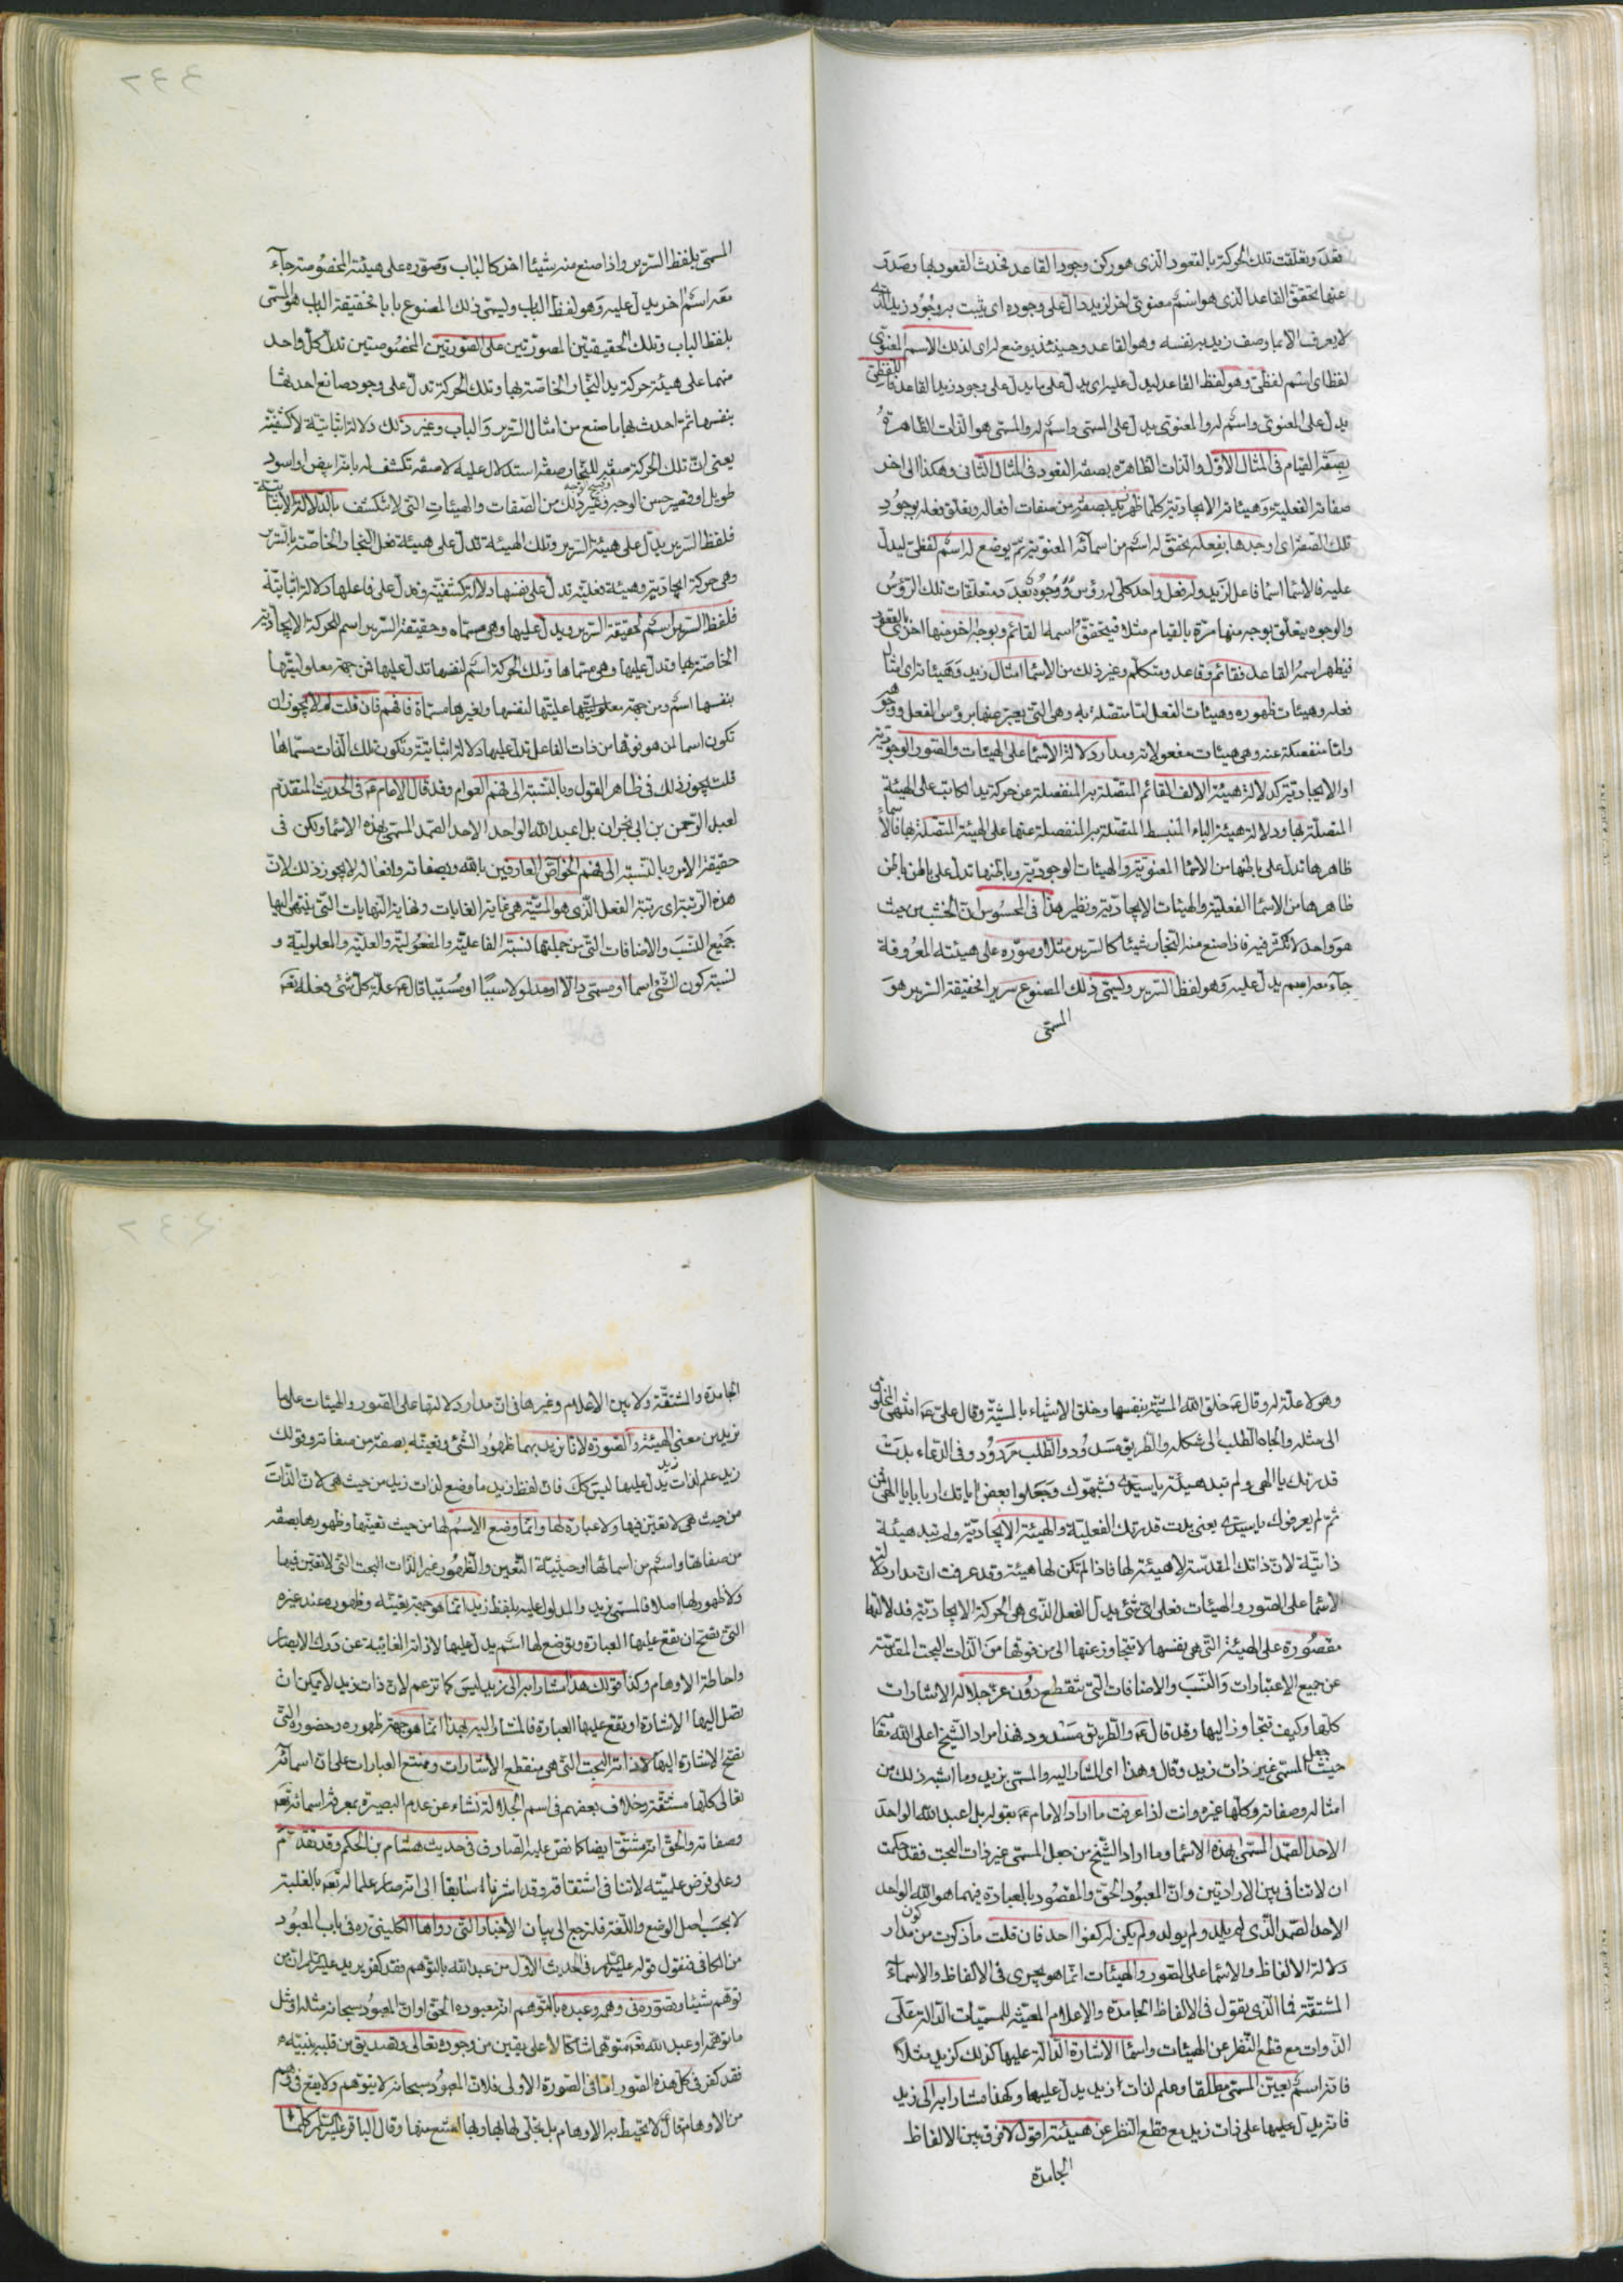 فقد وتعلقت تلك الحركة بالقعود الذى هو ركن وجود القاعد فحدث القعود بها وصدق
عنها تحقق القاعد الذى هو اسم معنوى اخر لزيد دال على وجوده اى يثبت به وجود زيد الذى
لا يعرف الا بما وصف زيد به نفسه وهو القاعد وحينئذ يوضع لراى لذلك الاسم المعنوى
لفظا اى اسم لفظى وهو لفظ القاعد ليدل عليه اى يدل على ما يدل على وجود زيد القاعد فاللفظى
يدل على المعنوى واسم له والمعنوى يدل على المسمى واسم له والمسمى هو الذات الظاهرة
بصفة القيام فى المثال الاول والذات الظاهره بصفة القعود فى المثال الثانى وهكذا الى اخر
صفاته الفعلية وهيئاته الايجادية كلما ظهر زيد بصفة من صفات افعاله وتعلق فعله بوجود
تلك الصفة اى اوجدها بفعله تحقق له اسم من اسمائه المعنوية ثم يوضع له اسم لفظى ليدل
عليه فالاسما اسما فاعل لزيد وله فعل واحد كلى له رؤس ووجوه بعدد متعلقات تلك الرؤس
والوجوه يتعلق بوجه منها مرة بالقيام مثلا فيتحقق اسمه القائم وبوجه اخر منها اخرى بالقعود
فيظهر اسمه القاعد فقائم وقاعد ومتكلم وغير ذلك من الاسما امثال زيد وهيئاته اى امثال
فعله وهيئات ظهوره وهيئات الفعل اما متصلة به وهى التى يعبر عنها برؤس الفعل ووجوهه
واما منفصلة عنه وهى هيئات مفعولاته ومدار دلالة الاسما على الهيئات والصور الوجودية
او الايجادية كدلالة هيئة الالف القائم المتصلة به المنفصلة عن حركة يد الكاتب على الهيئة
المتصلة بها ودلالة هيئة الباء المنبسط المتصلة به المنفصلة عنها على الهيئة المتصلة بها فالاسماء
ظاهرها تدل على باطنها من الاسما المعنوية والهيئات الوجودية وباطنها تدل على باطن باطن
ظاهرها من الاسما الفعلية والهيئات الايجادية ونظير هذا فى المحسوس ان الخشب من حيث
هو واحد لا تكثر فيه فاذا صنع منه النجار شيئا كالسرير مثلا وصوره على هيئته المعروفة
جآء معه اسم يدل عليه وهو لفظ السرير وليسمى ذلك المصنوع سريرا فحقيقة السرير هو
المسمى
المسمى بلفظ السرير واذا صنع منه شيئا اخر كالباب وصوره على هيئته المخصوصة جآء
معه اسم اخر يدل عليه وهو لفظ الباب وليسمى ذلك المصنوع بابا فحقيقة الباب هو المسمى
بلفظ الباب وتلك الحقيقتين المصورتين على الصورتين المخصوصتين تدل كل واحد
منهما على هيئة حركة يد النجار الخاصة بها وتلك الحركة تدل على وجود صانع احدثها
بنفسها ثم احدث بها ما صنع من امثال السرير والباب وغير ذلك دلالة اثباتية لا كشفية
يعنى ان تلك الحركة صفة للنجار صفة استدلال عليه لا صفة تكشف له بانه ابيض او اسود
طويل او قصير حسن الوجه او قبيح الوجه وغير ذلك من الصفات والهيئات التى لا تنكشف بالدلالة الاثباتية
فلفظ السرير يدل على هيئة السرير وتلك الهيئة تدل على هيئة فعل النجار الخاصة بالسرير
وهى حركة ايجادية وهيئة فعلية تدل على نفسها دلالة كشفية وتدل على فاعلها دلالة اثباتية
فلفظ السرير اسم لحقيقة السرير ويدل عليها وهى مسماه وحقيقة السرير اسم للحركة الايجادية
الخاصة بها وتدل عليها وهى مسماها وتلك الحركة اسم لنفسها تدل عليها فمن جهة معلوليتها
بنفسها اسم ومن جهة عليتها لنفسها ولغيرها مسماة فافهم فان قلت لم لا يجوز ان
تكون اسما لمن هو فوقها من ذات الفاعل تدل عليها دلالة اثباتية وتكون تلك الذات مسماها
قلت يجوز ذلك فى ظاهر القول وبالنسبة الى فهم العوام وقد قال الامام ع فى الحديث المتقدم
لعبد الرحمن بن ابى نجران بل اعبد الله الواحد الاحد الصمد المسمى بهذه الاسما ولكن فى
حقيقة الامر وبالنسبة الى فهم الخواص العارفين بالله وبصفاته وافعاله لا يجوز ذلك لان
هذه الرتبة اى رتبة الفعل الذى هو المشية هى غاية الغايات ونهاية النهايات التى ينتهى اليها
جميع النسب والاضافات التى من جملتها نسبة الفاعلية والمفعولية والعلية والمعلولية و
نسبة كون الشى اسما او مسمى دالا او مدلولا سببا او مسببا قال ع علة كل شئ فعله تعه
وهو لا علة له وقال ع خلق الله المشية بنفسها وخلق الاشياء بالمشية وقال على ع انتهى المخلوق
الى مثله والجاه الطلب الى شكله والطريق مسدود والطلب مردود وفى الدعاء بدت
قدرتك يا الهى ولم تبد هيئة يا سيدى فشبهوك وجعلوا بعض اياتك اربابا يا الهى فمن
ثم لم يعرفوك يا سيدى يعنى بدت قدرتك الفعلية والهيئة الايجادية ولم تبد هيئة
ذاتية لان ذاتك المقدسة لا هيئة لها فاذا لم تكن لها هيئة وقد عرفت ان مدار دلالة
الاسما على الصور والهيئات فعلى اى شئ يدل الفعل الذى هى الحركة الايجادية فدلالتها
مقصورة على الهيئة التى هى نفسها لا تتجاوز عنها الى من فوقها من الذات البحت المقدسة
عن جميع الاعتبارات والنسب والاضافات التى تنقطع دون عز جلاله الاشارات
كلها وكيف تتجاوز اليها وقد قال ع والطريق مسدود فهذا مراد الشيخ اعلى الله مقامه
حيث جعل المسمى غير ذات زيد وقال وهذا اى المشار اليه والمسمى بزيد وما اشبه ذلك من
امثاله وصفاته وكلها غيره وانت اذا عرفت ما اراد الامام ع بقوله بل اعبد الله الواحد
الاحد الصمد المسمى بهذه الاسما وما اراد الشيخ من جعل المسمى غير ذات البحت فقد حكمت
ان لا تنافى بين الارادتين وان المعبود الحق والمقصود بالعبادة فيهما هو الله الواحد
الاحد الصمد الذى لم يلد ولم يولد ولم يكن له كفوا احد فان قلت ما ذكرت من كون مدار
دلالة الالفاظ والاسما على الصور والهيئات انما هو يجرى فى الالفاظ والاسماء
المشتقة فما الذى يقول فى الالفاظ الجامدة والاعلام المعينة للمسميات الدالة على
الذوات مع قطع النظر عن الهيئات واسما الاشارة الدالة عليها كذلك كزيد مثلا
فانه اسم يعين المسمى مطلقا وعلم لذات زيد يدل عليها وكهذا مشارا به الى زيد
فانه يدل عليها على ذات زيد مع قطع النظر عن هيئته اقول لا فرق بين الالفاظ
الجامدة
الجامدة والمشتقة ولا بين الاعلام وغيرها فى ان مدار دلالتها على الصور والهيئات على ما
نريد من معنى الهيئة والصورة لانا نريد بهما ظهور الشئ وتعينه بصفة من صفاته وقولك
زيد علم لذات زيد يدل عليها ليس كك فان لفظ زيد ما وضع لذات زيد من حيث هى لان الذات
من حيث هى لا تعين فيها ولا عبارة لها وانما وضع الاسم لها من حيث تعينها وظهورها بصفة
من صفاتها واسم من اسمائها وحيثية التعين والظهور غير الذات البحت التى لا تعين فيها
ولا ظهور لها اصلا فالمسمى بزيد والمدلول عليه بلفظ زيد انما هو جهة تعينه وظهوره عند غيره
التى تصح ان تقع عليها العبارة وتوضع لها اسم يدل عليها لا ذاته الغائبة عن درك الابصار
واحاطة الاوهام وكذا قولك هذا مشارا به الى زيد ليس كما تزعم لان ذات زيد لا يمكن ان
تصل اليها الاشارة او تقع عليها العبارة فالمشار اليه بهذا انما هو جهة ظهوره وحضوره التى
تصح الاشارة اليها لا ذاته البحت التى هى منقطع الاشارات وممتنع العبارات على ان اسمائه
تعالى كلها مشتقة وخلاف بعضهم فى اسم الجلالة نشاء عن عدم البصيرة بمعرفة اسمائه تعه
وصفاته والحق انه مشتق ايضا كما نص عليه الصادق فى حديث هشام بن الحكم وقد تقدم
وعلى فرض علميته لا تنافى اشتقاقه وقد اشرنا سابقا الى انه صار علما له تعه بالغلبة
لا بحسب اصل الوضع واللغة فلنرجع الى بيان الاخبار التى رواها الكلينى ره فى باب المعبود
من الكافى فنقول قوله عليه السلم فى الحديث الاول من عبد الله بالتوهم فقد كفر يريد عليه السلم ان من
توهم شيئا وتصوره فى وهمه وعبده بالتوهم انه معبوده الحق او ان المعبود سبحانه مثله او مثل
ما توهمه او عبد الله تعه متوهما شاكا لا على يقين من وجوده تعالى وتصديق من قلبه بنبيه ص
فقد كفر فى كل هذه الصور اما فى الصورة الاولى فلان المعبود سبحانه لا يتوهم ولا يقع فى وهم
من الاوهام قال لا تحيط به الاوهام بل تجلى لها بها وبها امتنع منها وقال الباقر عليه السلم كلما